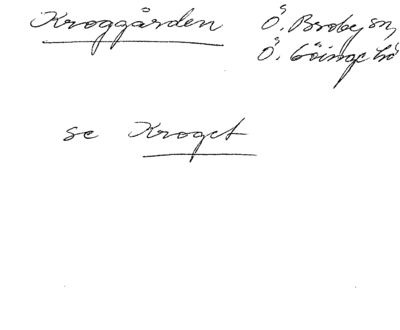 Kroggården Ö. Broby sn,
Ö. Göinge hd
se Kroget